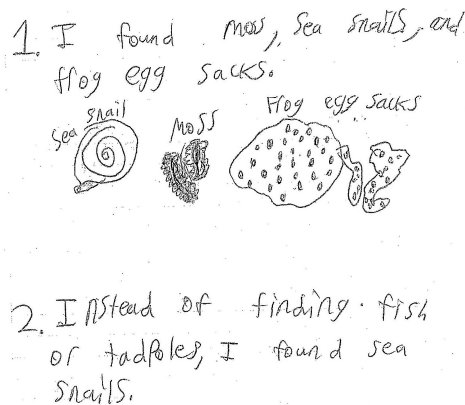 1. I found moss, sea snails, and
frog egg sacks.
Sea snail
Moss
Frog egg sacks
2. Instead of finding fish
or tadpoles, I found sea
snails.